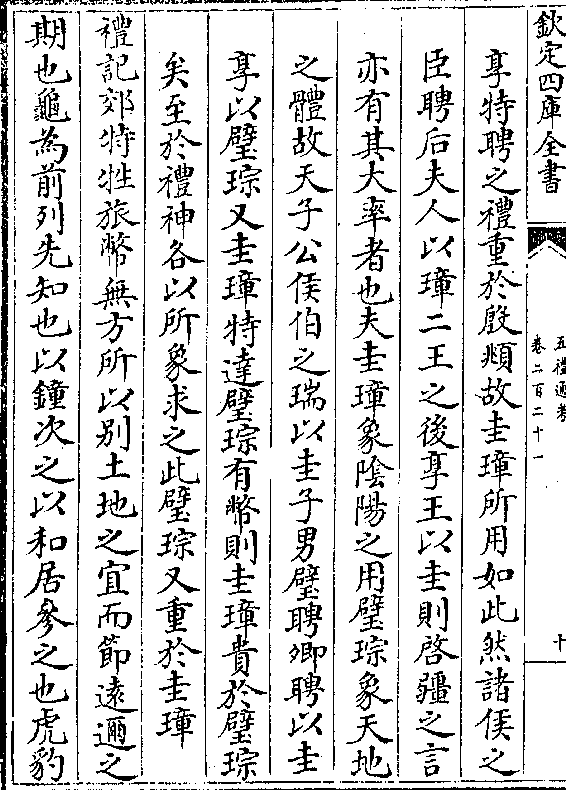 欽定四庫全書
五禮通考
卷二百二十一
十
享特聘之禮重於殷頫故圭璋所用如此然諸侯之
臣聘后夫人以璋二王之後享王以圭則啓疆之言
亦有其大率者也夫圭璋象隂陽之用璧琮象天地
之體故天子公侯伯之瑞以圭子男璧聘卿聘以圭
享以璧琮又圭璋特達璧琮有幣則圭璋貴於璧琮
矣至於禮神各以所象求之此璧琮又重於圭璋
禮記郊特牲旅幣無方所以别土地之宜而節遠邇之
期也龜為前列先知也以鐘次之以和居參之也虎豹